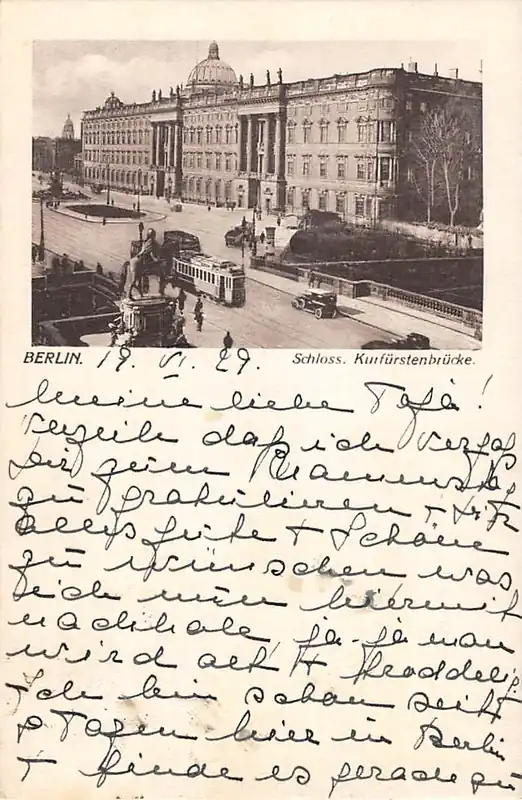 BERLIN. 19. VI. 29. Schloss. Kurfürstenbrücke.
Meine liebe Tafa!
Verzeih daß ich vergaß
Dir zum Namenstag
zu gratulieren +
alles gute + Schöne
zu wünschen was
ich nun hiermit
nachhole, ja-ja man
wird alt + kroddelig
Ich bin schon seit
Tagen hier in Berlin
+ finde es gerade zu